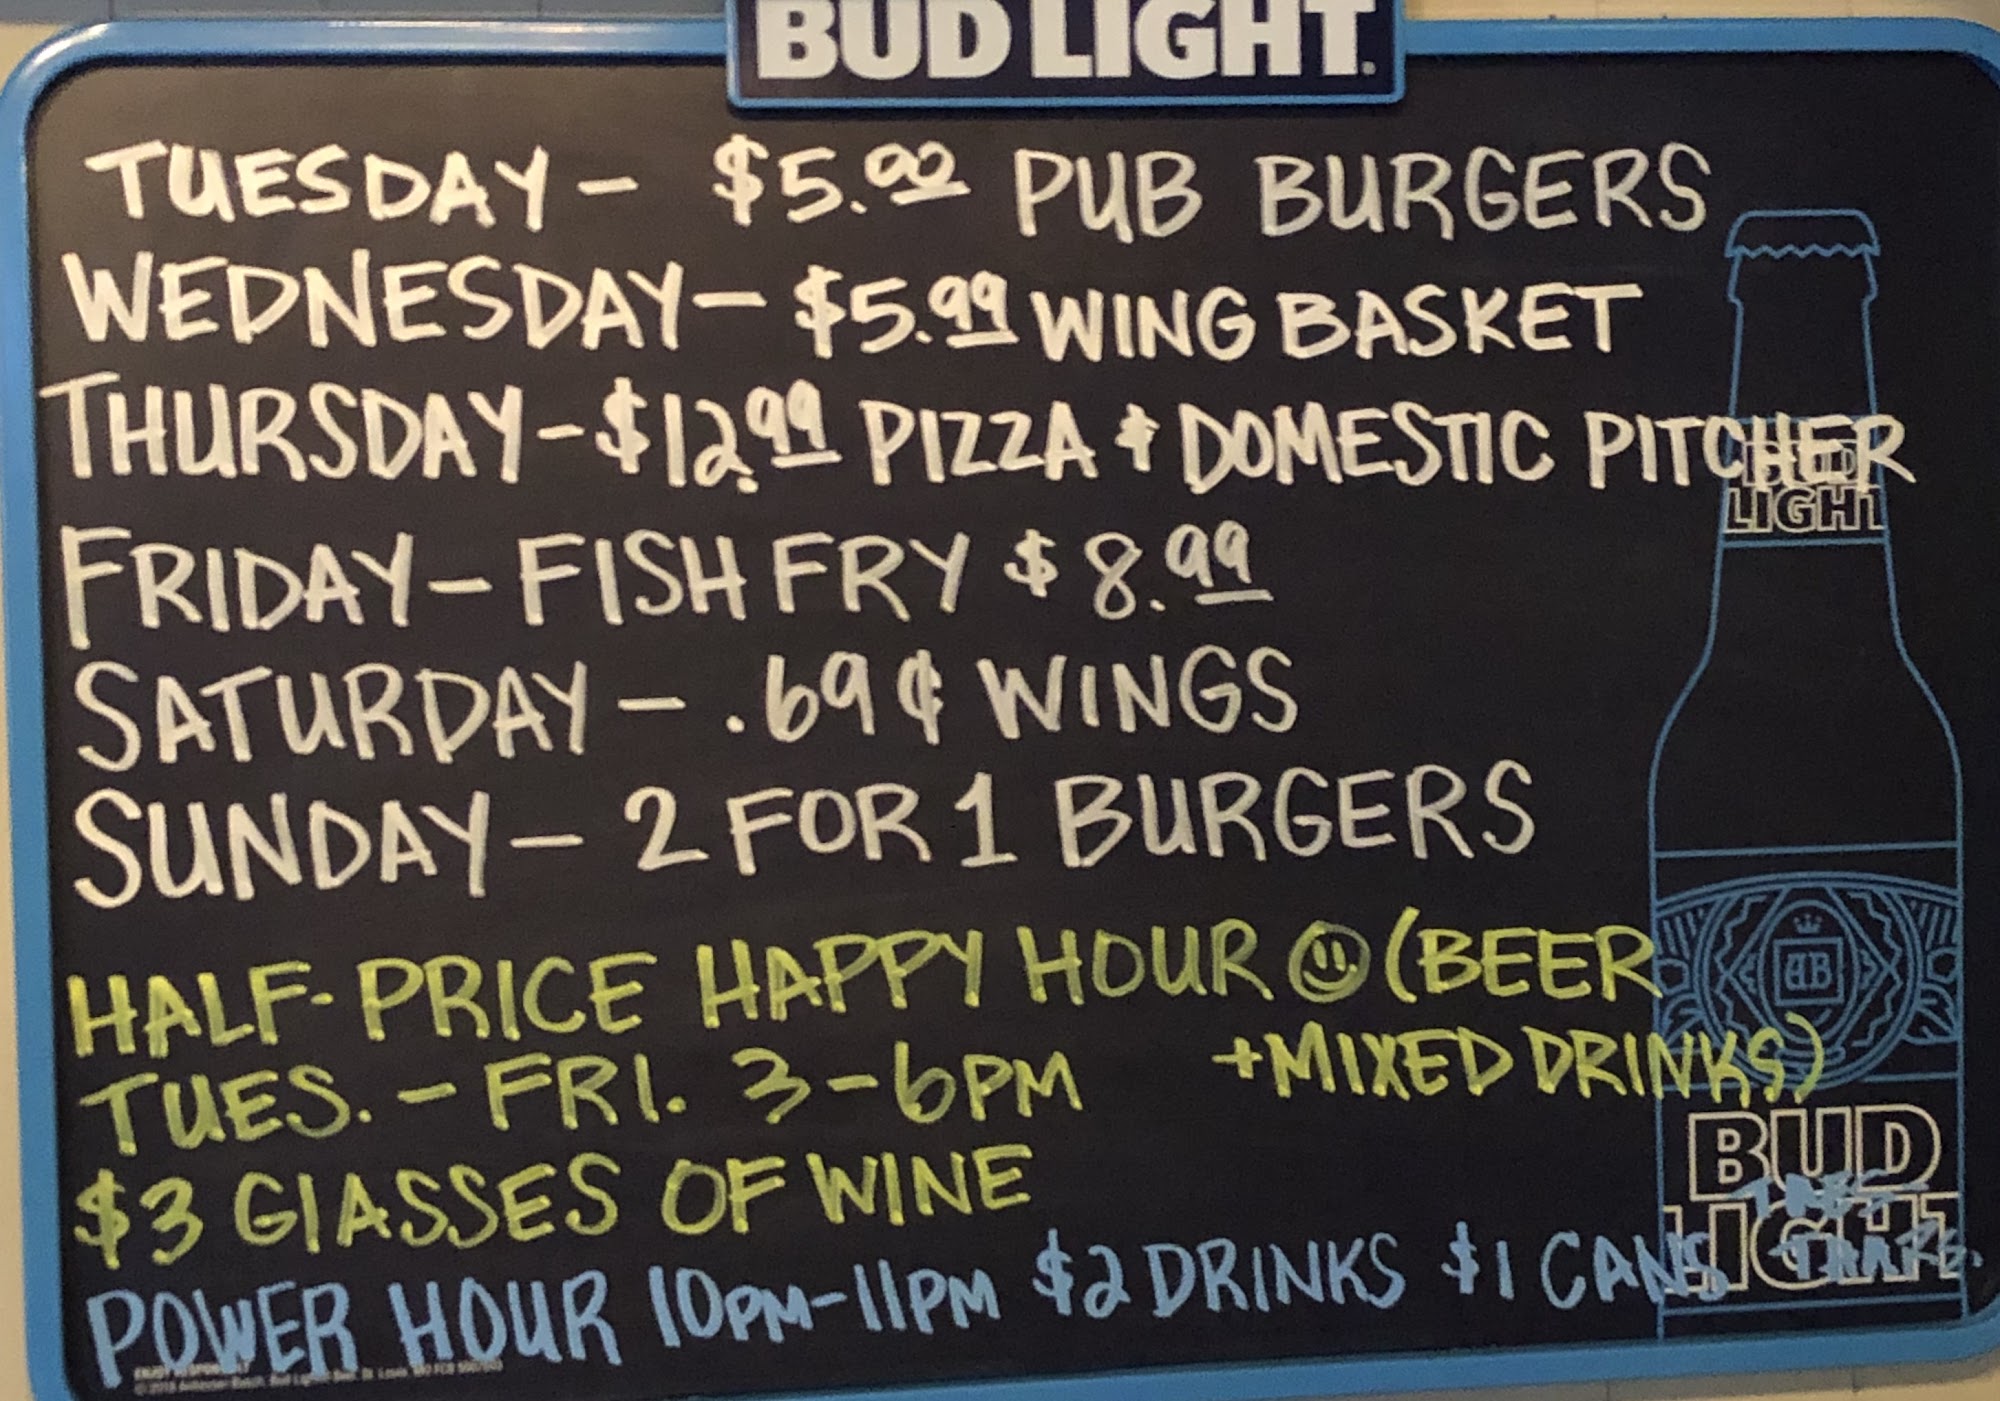 BUD LIGHT
TUESDAY - $5.00 PUB BURGERS
WEDNESDAY - $5.99 WING BASKET
THURSDAY - $12.99 PIZZA & DOMESTIC PITCHER
BUD
LIGHT
FRIDAY - FISH FRY $8.99
SATURDAY - .69¢ WINGS
SUNDAY - 2 FOR 1 BURGERS
HALF-PRICE HAPPY HOUR (BEER
+ MIXED DRINKS)
TUES. - FRI. 3-6PM
$3 GLASSES OF WINE
AB
BUD
LIGHT
POWER HOUR 10PM-11PM $2 DRINKS $1 CANS